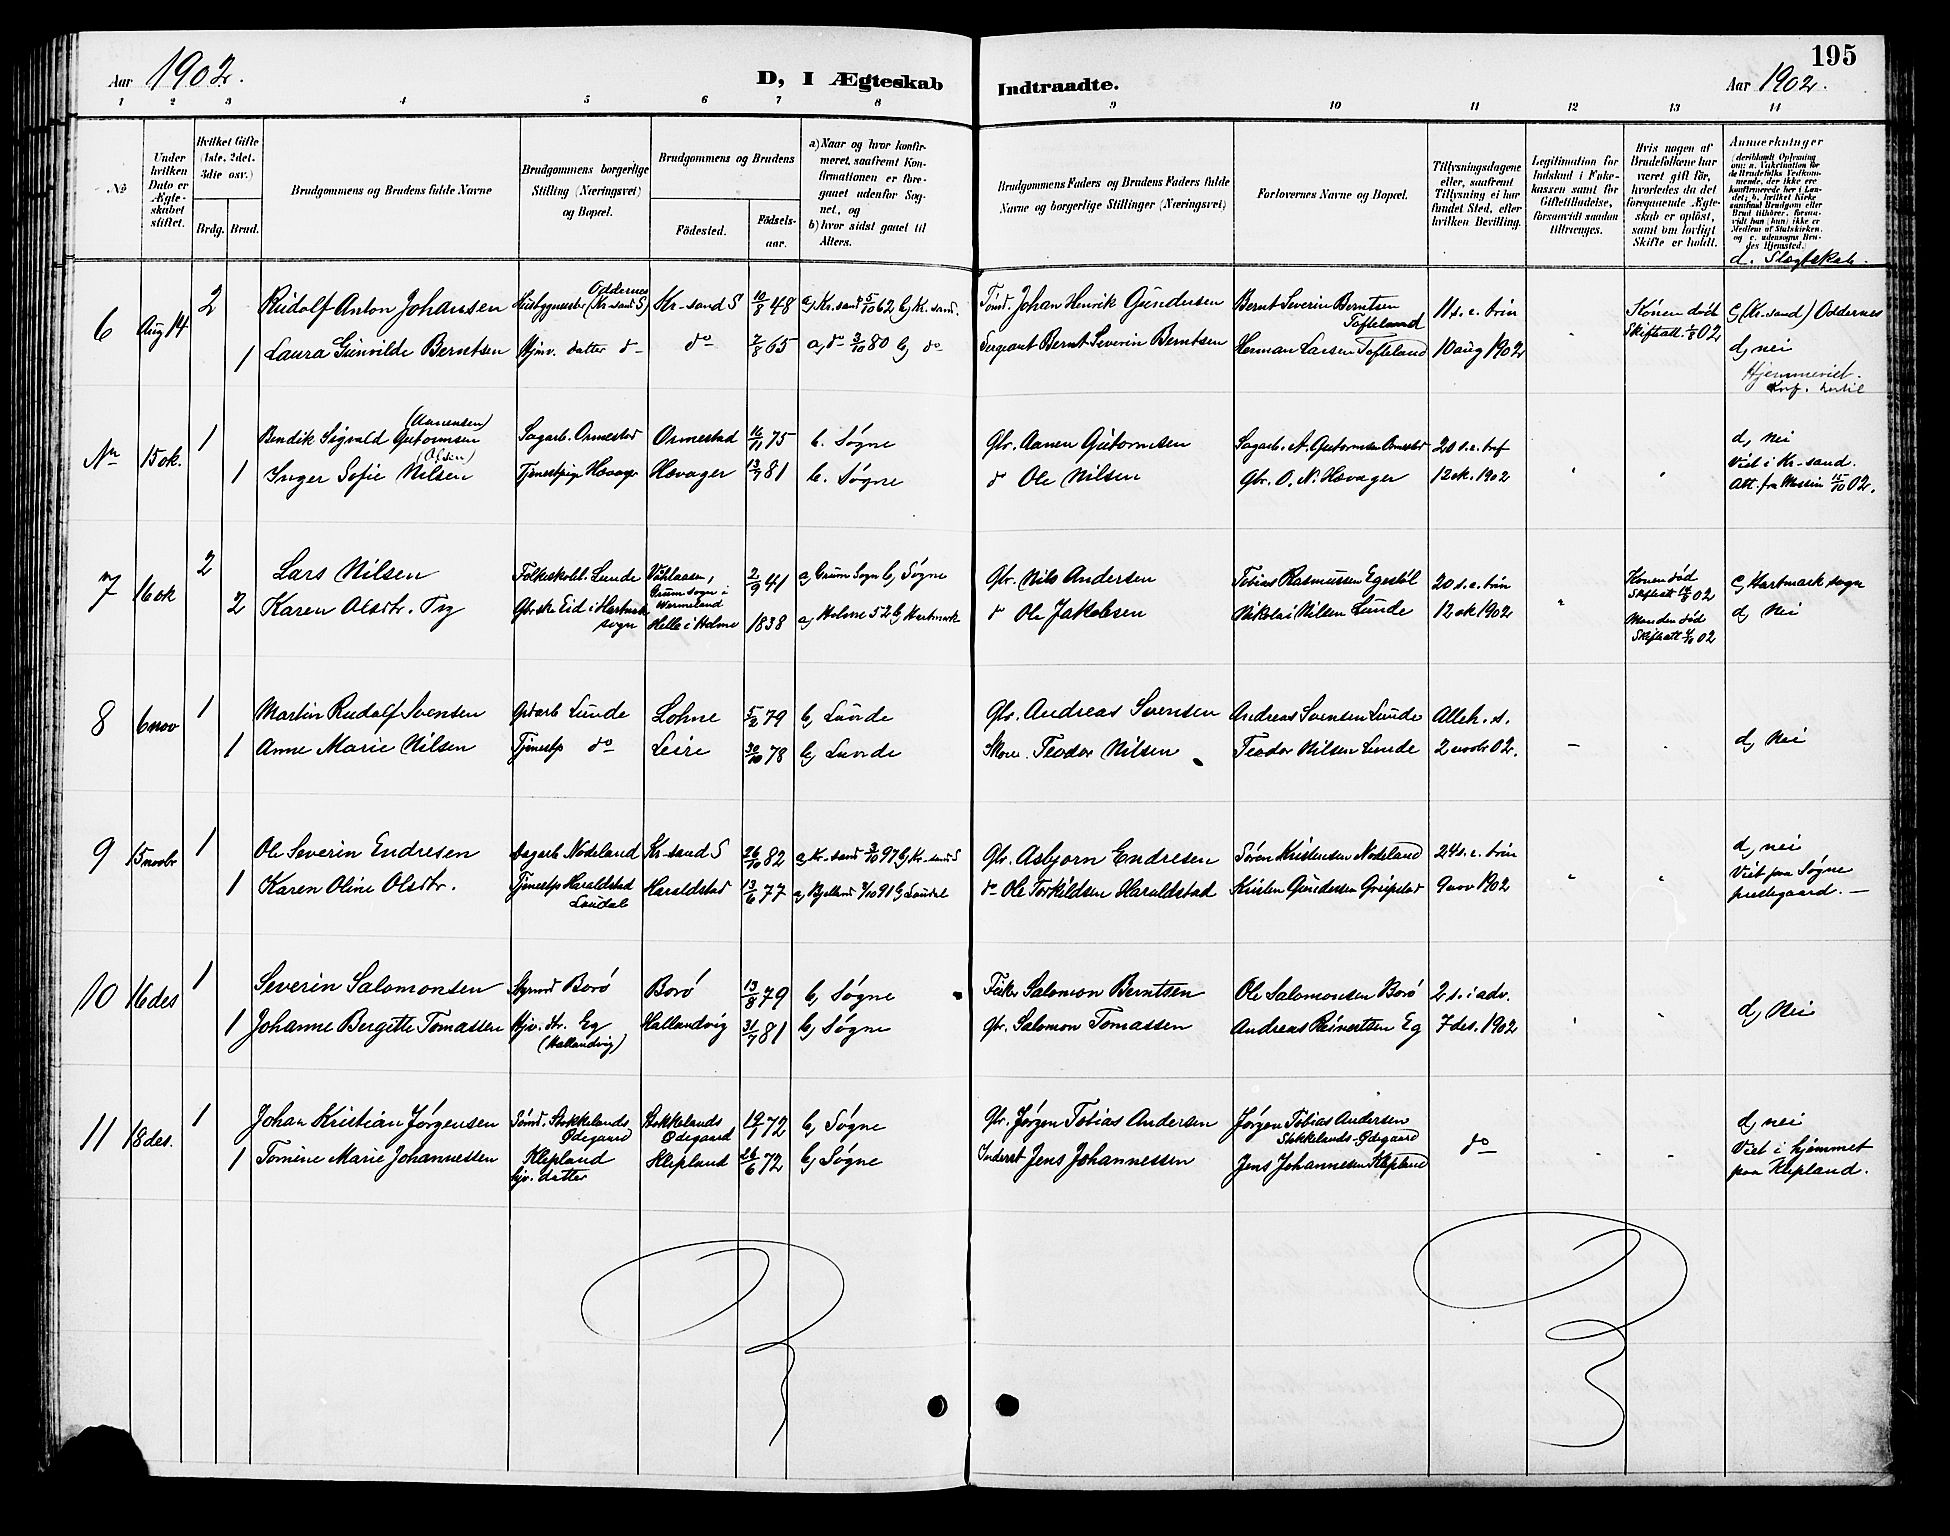 195
Aar 1902.
D, I Ægteskab
Indtraadte.
Aar 1902.
1 2 3 4 5 6 7 8 9 10 11 12 13 14
No
Under hvilken Dato er Ægteskabet stiftet.
Hvilket Gifte (1ste, 2det, 3die osv.)
Brdg. Brud.
Brudgommens og Brudens fulde Navne
Brudgommens borgerlige Stilling (Næringsvei) og Bopæl.
Brudgommens og Brudens
Fødested.
Fødsels-aar.
a) Naar og hvor konfirmeret, saafremt Konfirmationen er foregaaet udenfor Sognet, og
b) hvor sidst gaaet til Alters.
Brudgommens Faders og Brudens Faders fulde Navne og borgerlige Stillinger (Næringsvei)
Forlovernes Navne og Bopæl.
Tillysningsdagene eller, saafremt Tillysning ei har fundet Sted, efter hvilken Bevilling.
Legitimation for Indskud i Enkekassen samt for Giftetilladelse, forsaavidt saadan tiltrænges.
Hvis nogen af Brudefolkene har været gift før, hvorledes da det foregaaende Ægteskab er opløst, samt om lovligt Skifte er holdt.
Anmærkninger
d. Slagtskab.
6 Aug 14 2 Rudolf Anton Johansen Husbygmester Oddernes (Kr-sand S) Kr-sand S 10/8 48 a, Kr.sand 5/10 62 b, Kr. sand. Tømd. Johan Henrik Gundersen Bernt Severin Berntsen Tofteland 11 s. e. trin Konen død Skifteatt. 02 c, (Kr-sand) Oddernes
1 Laura Gunvilde Berntsen Hjmv. datter do do 7/8 65 a, do 3/10 80 b, do Sergeant Bernt Severin Berntsen Herman Larsen Tofteland 10 aug 1902 d, nei
Hjemmeviet.
15 ok. 1 Bendik Sigvald Gutormsen (Aanensen) Sagarb. Ormestad Ormestad 16/11 75 b. Søgne Gbr. Aanen Gutormsen Sagarb. A. Gutormsen Ormestad 20 s. e. trf d, nei
1 Inger Sofie Nilsen (Olsen) Tjenestpige Hovager Hovager 13/7 81 b. Søgne do Ole Nilsen Gbr. O. N. Hovager 12 ok. 1902 Viet i Kr-sand.
Att. fra 15/10 02.
7 16 ok 2 Lars Nilsen Folkeskol. Lunde Grumsogn i Wermeland 2/9 41 a, Grum Sogn b, Søgne Gbr. Nils Andersen Tobias Rasmussen Egestøl 20 s. e. trin Konen død Skifteatt 02 c, Hartmark sogn
2 Karen Olsdtr. Try Gbrske Eid i Hartmark sogn Helle i Holme 1838 a, Holme 52 b, Hartmark do Ole Jakobsen Nikolai Nilsen Lunde 12 ok 1902 Manden død Skifteatt 02 d, Nei
8 6 nov 1 Martin Rudolf Svensen Gdarb Lunde Lohne 5/2 79 b, Lunde Gbr. Andreas Svensen Andreas Svensen Lunde Alleh. s.
1 Anne Marie Nilsen Tjenestp do Leire 30/10 78 b, Lunde Skom. Teodor Nilsen Teodor Nilsen Lunde 2 novbr 02. d, Nei
9 15 novbr 1 Ole Severin Endresen Dagarb Nodeland Kr-sand S 26/10 82 a, Kr-sand 3/10 97 b, Kr-sand S Gbr. Asbjørn Endresen Søren Kristensen Nodeland 24 s. e. trin d, nei
1 Karen Oline Olsdtr. Tjenestp Haraldstad Laudal Haraldstad 13/6 77 a, Bjelland 91 b, Laudal do Ole Torkildsen Haraldstad Kristen Gundersen Greipstad 9 nov 1902 Viet paa Søgne prestegaard.
10 16 des 1 Severin Salomonsen Styrmd Borø Borø 13/8 79 b, Søgne Fisker Salomon Berntsen Ole Salomonsen Borø 2 s. i adv.
1 Johanne Bergitte Tomassen Hjv. dtr. Eg (Hallandvig) Hallandvig 31/7 81 b, Søgne Gbr. Salomon Tomassen Andreas Reinertsen Eg 7 des. 1902 d, Nei
11 18 des. 1 Johan Kristian Jørgensen Tømd. Stokkelands Ødegaard Stokkelands Ødegaard 19/7 72 b, Søgne Gbr. Jørgen Tobias Andersen Jørgen Tobias Andersen Stokkelands-Ødegaard do d, nei
1 Tomine Marie Johannessen Klepland hjv. datter Klepland 26/6 72 b, Søgne Inderst Jens Johannessen Jens Johannesen Klepland Viet i hjemmet paa Klepland.